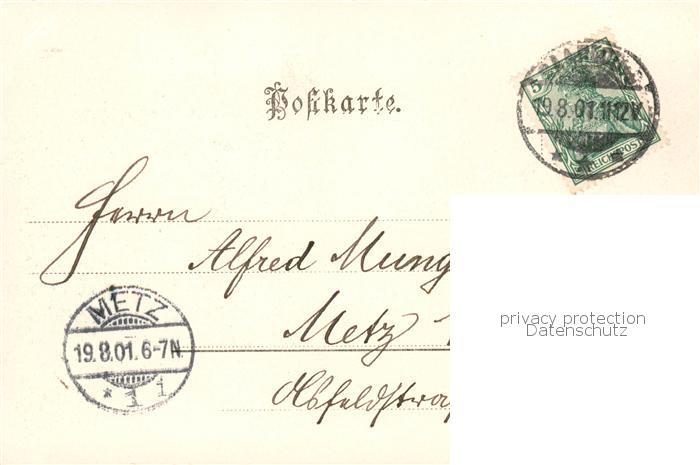 Postkarte.
19.8.01.11-12V.
5
REICHSPOST
Herrn
Alfred Mung
privacy protection
Datenschutz
METZ
19.8.01.6-7N
* 1 i
Metz